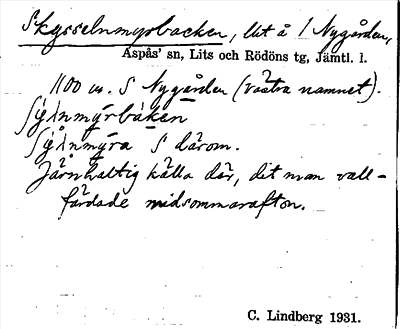 Skysselnmyrbacken, Ut å 1 Nygården,
Aspås' sn, Lits och Rödöns tg, Jämtl. l.
1100 m. S Nygården (västra namnet).
S därom.
Järnhaltig källa där, dit man vall-
färdade midsommarafton.
C. Lindberg 1931.